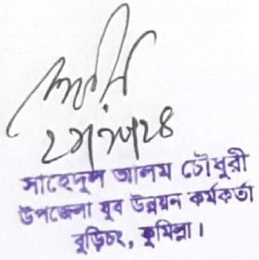 সাহেদুল আলম চৌধুরী
উপজেলা যুব উন্নয়ন কর্মকর্তা
বুড়িচং, কুমিল্লা।